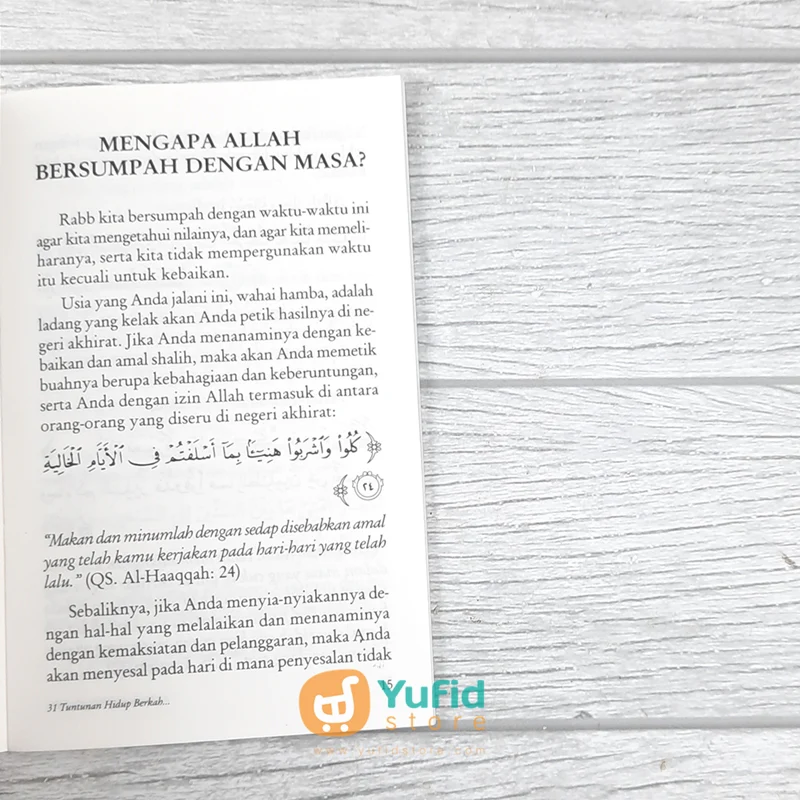 MENGAPA ALLAH
BERSUMPAH DENGAN MASA?
Rabb kita bersumpah dengan waktu-waktu ini
agar kita mengetahui nilainya, dan agar kita memeli-
haranya, serta kita tidak mempergunakan waktu
itu kecuali untuk kebaikan.
Usia yang Anda jalani ini, wahai hamba, adalah
ladang yang kelak akan Anda petik hasilnya di ne-
geri akhirat. Jika Anda menanaminya dengan ke-
baikan dan amal shalih, maka akan Anda memetik
buahnya berupa kebahagiaan dan keberuntungan,
serta Anda dengan izin Allah termasuk di antara
orang-orang yang diseru di negeri akhirat:
كُلُوا۟ وَٱشْرَبُوا۟ هَنِيٓـًٔۢا بِمَآ أَسْلَفْتُمْ فِى ٱلْأَيَّامِ ٱلْخَالِيَةِ
٢٤
“Makan dan minumlah dengan sedap disebabkan amal
yang telah kamu kerjakan pada hari-hari yang telah
lalu.” (QS. Al-Haaqqah: 24)
Sebaliknya, jika Anda menyia-nyiakannya de-
ngan hal-hal yang melalaikan dan menanaminya
dengan kemaksiatan dan pelanggaran, maka Anda
akan menyesal pada hari di mana penyesalan tidak
15
31 Tuntunan Hidup Berkah...
Yufid
store
www.yufidstore.com